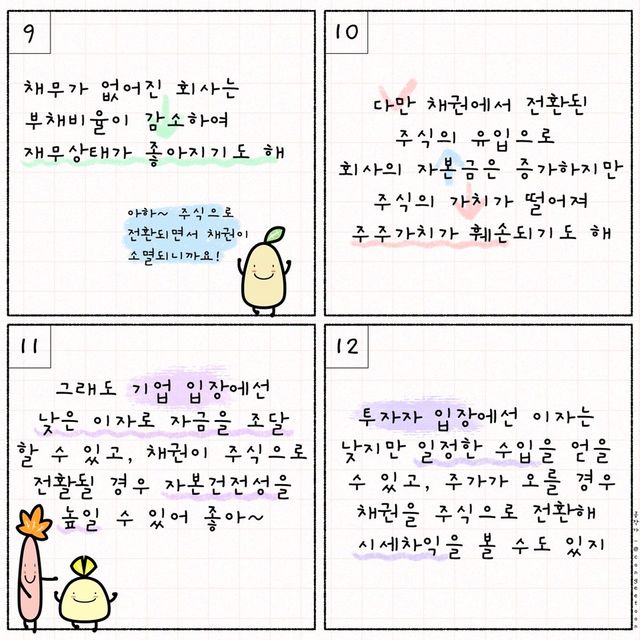 9
채무가 없어진 회사는
부채비율이 감소하여
재무상태가 좋아지기도 해
아하~ 주식으로
전환되면서 채권이
소멸되니까요!
10
다만 채권에서 전환된
주식의 유입으로
회사의 자본금은 증가하지만
주식의 가치가 떨어져
주주가치가 훼손되기도 해
11
그래도 기업 입장에선
낮은 이자로 자금을 조달
할 수 있고, 채권이 주식으로
전활될 경우 자본건전성을
높일 수 있어 좋아~
12
투자자 입장에선 이자는
낮지만 일정한 수입을 얻을
수 있고, 주가가 오를 경우
채권을 주식으로 전환해
시세차익을 볼 수도 있지